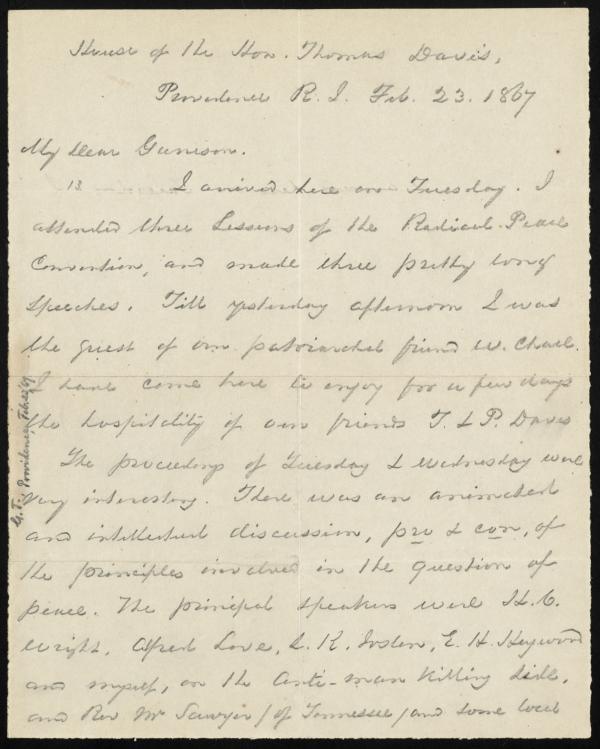 House of the Hon. Thomas Davis,
Providence R. I. Feb. 23. 1867
My Dear Garrison.
I arrived here on Tuesday. I
attended three Sessions of the Radical Peace
Convention, and made three pretty long
speeches. Till yesterday afternoon I was
the guest of our patriarchal friend W. Chace.
I have come here to enjoy for a few days
the hospitality of our friends T. & P. Davis
The proceedings of Tuesday & Wednesday were
very interesting. There was an animated
and intellectual discussion, pro & con, of
the principles involved in the question of
peace. The principal speakers were H. C.
Wright, Alfred Love, L. K. Joslin, E. H. Heywood
and myself, on the Anti-man killing side,
and Rev Mr Sawyer / of Tennessee / and some local
G. T. Providence, Feb. 23/67